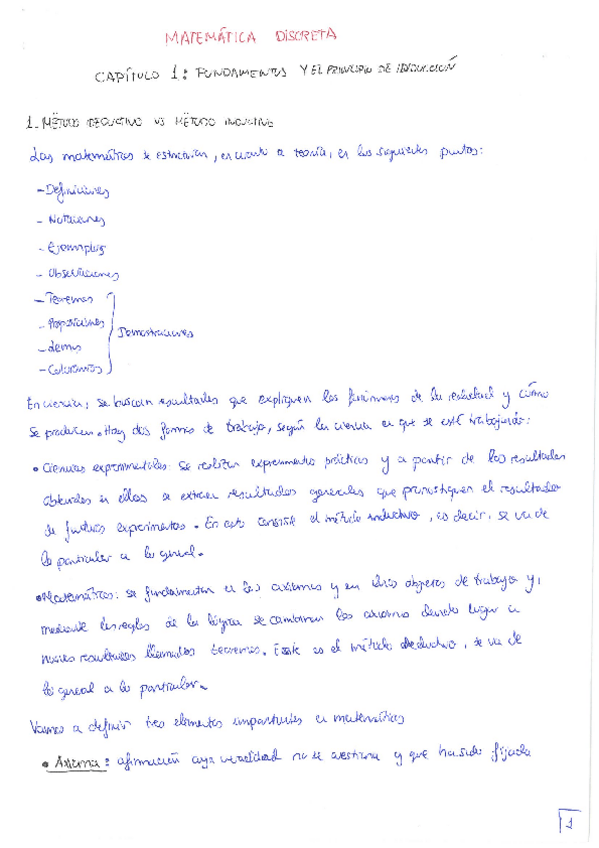 MATEMÁTICA DISCRETA
CAPÍTULO 1: FUNDAMENTOS Y EL PRINCIPIO DE INDUCCIÓN
1.- MÉTODO DEDUCTIVO VS MÉTODO INDUCTIVO
Las matemáticas se estructuran, en cuanto a teoría, en los siguientes puntos:
- Definiciones
- Notaciones
- Ejemplos
- Observaciones
- Teoremas
- Proposiciones
Demostraciones
- Lemas
- Corolarios
En ciencia, se buscan resultados que expliquen los fenómenos de la realidad y cómo
se producen. Hay dos formas de trabajo, según la ciencia en que se esté trabajando:
• Ciencias experimentales: se realizan experimentos prácticos y a partir de los resultados
obtenidos en ellos se extraen resultados generales que pronostiquen el resultado
de futuros experimentos. En esto consiste el método inductivo, es decir, se va de
lo particular a lo general.
• Matemáticas: se fundamentan en los axiomas y en otros objetos de trabajo y,
mediante las reglas de la lógica se combinan los axiomas dando lugar a
nuevos resultados llamados teoremas. Este es el método deductivo, se va de
lo general a lo particular.
Vamos a definir tres elementos importantes en matemáticas
• Axioma: afirmación cuya veracidad no se cuestiona y que ha sido fijada
1